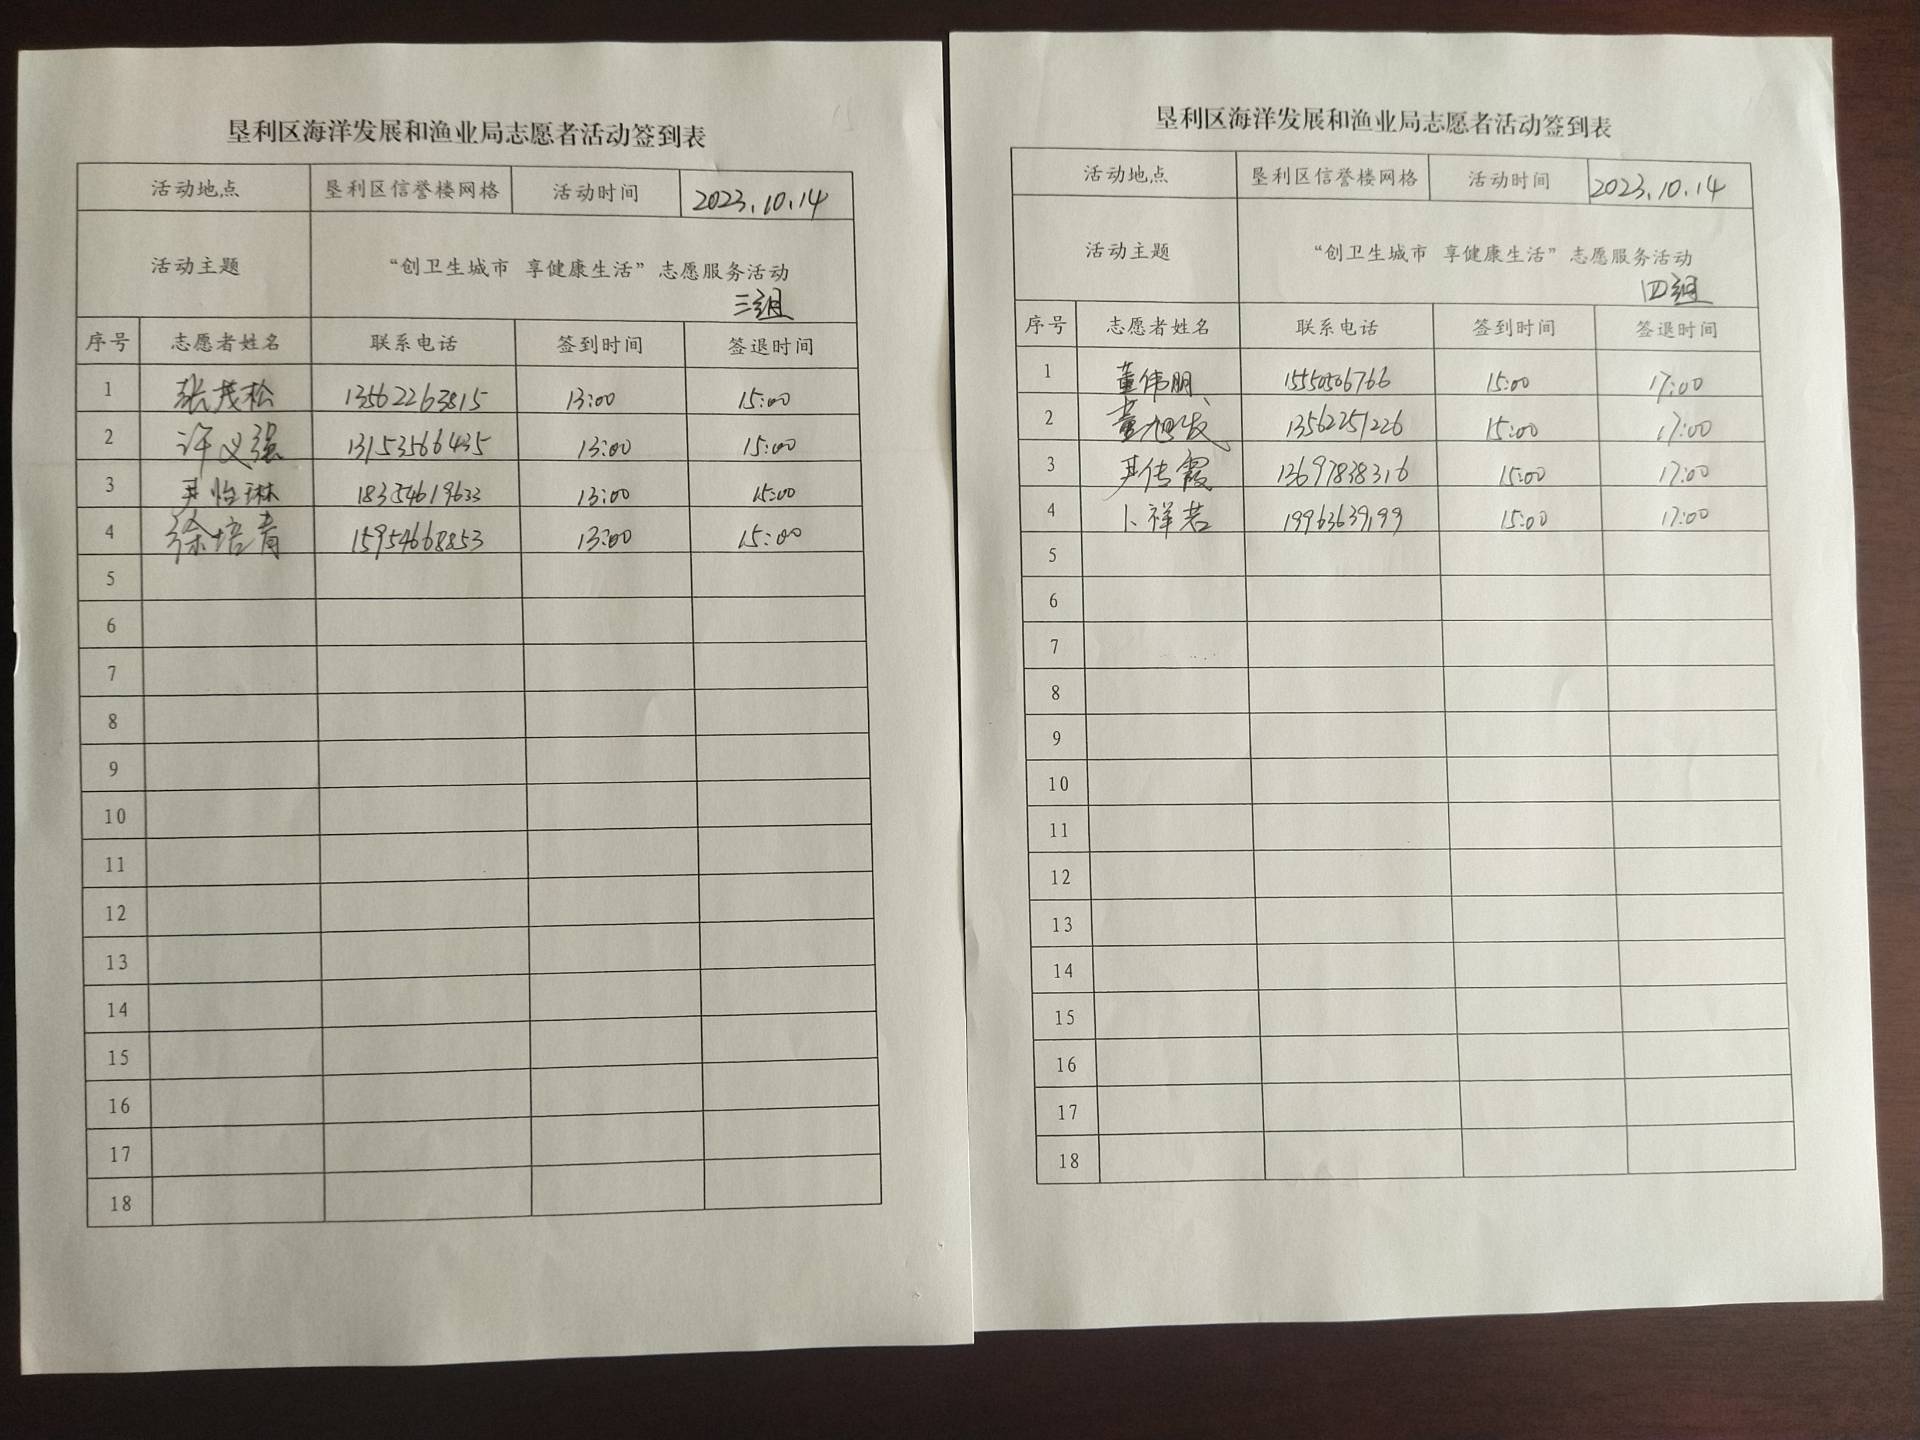 垦利区海洋发展和渔业局志愿者活动签到表
活动地点 垦利区信誉楼网格 活动时间 2023.10.14
活动主题 “创卫生城市 享健康生活”志愿服务活动
三组
序号 志愿者姓名 联系电话 签到时间 签退时间
1 张茂松 13562263815 13:00 15:00
2 许义强 13153566435 13:00 15:00
3 尹怡琳 18354619633 13:00 15:00
4 徐培青 15954668853 13:00 15:00
5
6
7
8
9
10
11
12
13
14
15
16
17
18
垦利区海洋发展和渔业局志愿者活动签到表
活动地点 垦利区信誉楼网格 活动时间 2023.10.14
活动主题 “创卫生城市 享健康生活”志愿服务活动
四组
序号 志愿者姓名 联系电话 签到时间 签退时间
1 董伟朋 15550506766 15:00 17:00
2 董旭 13562251226 15:00 17:00
3 尹传霞 13697838316 15:00 17:00
4 卜祥若 19963639199 15:00 17:00
5
6
7
8
9
10
11
12
13
14
15
16
17
18